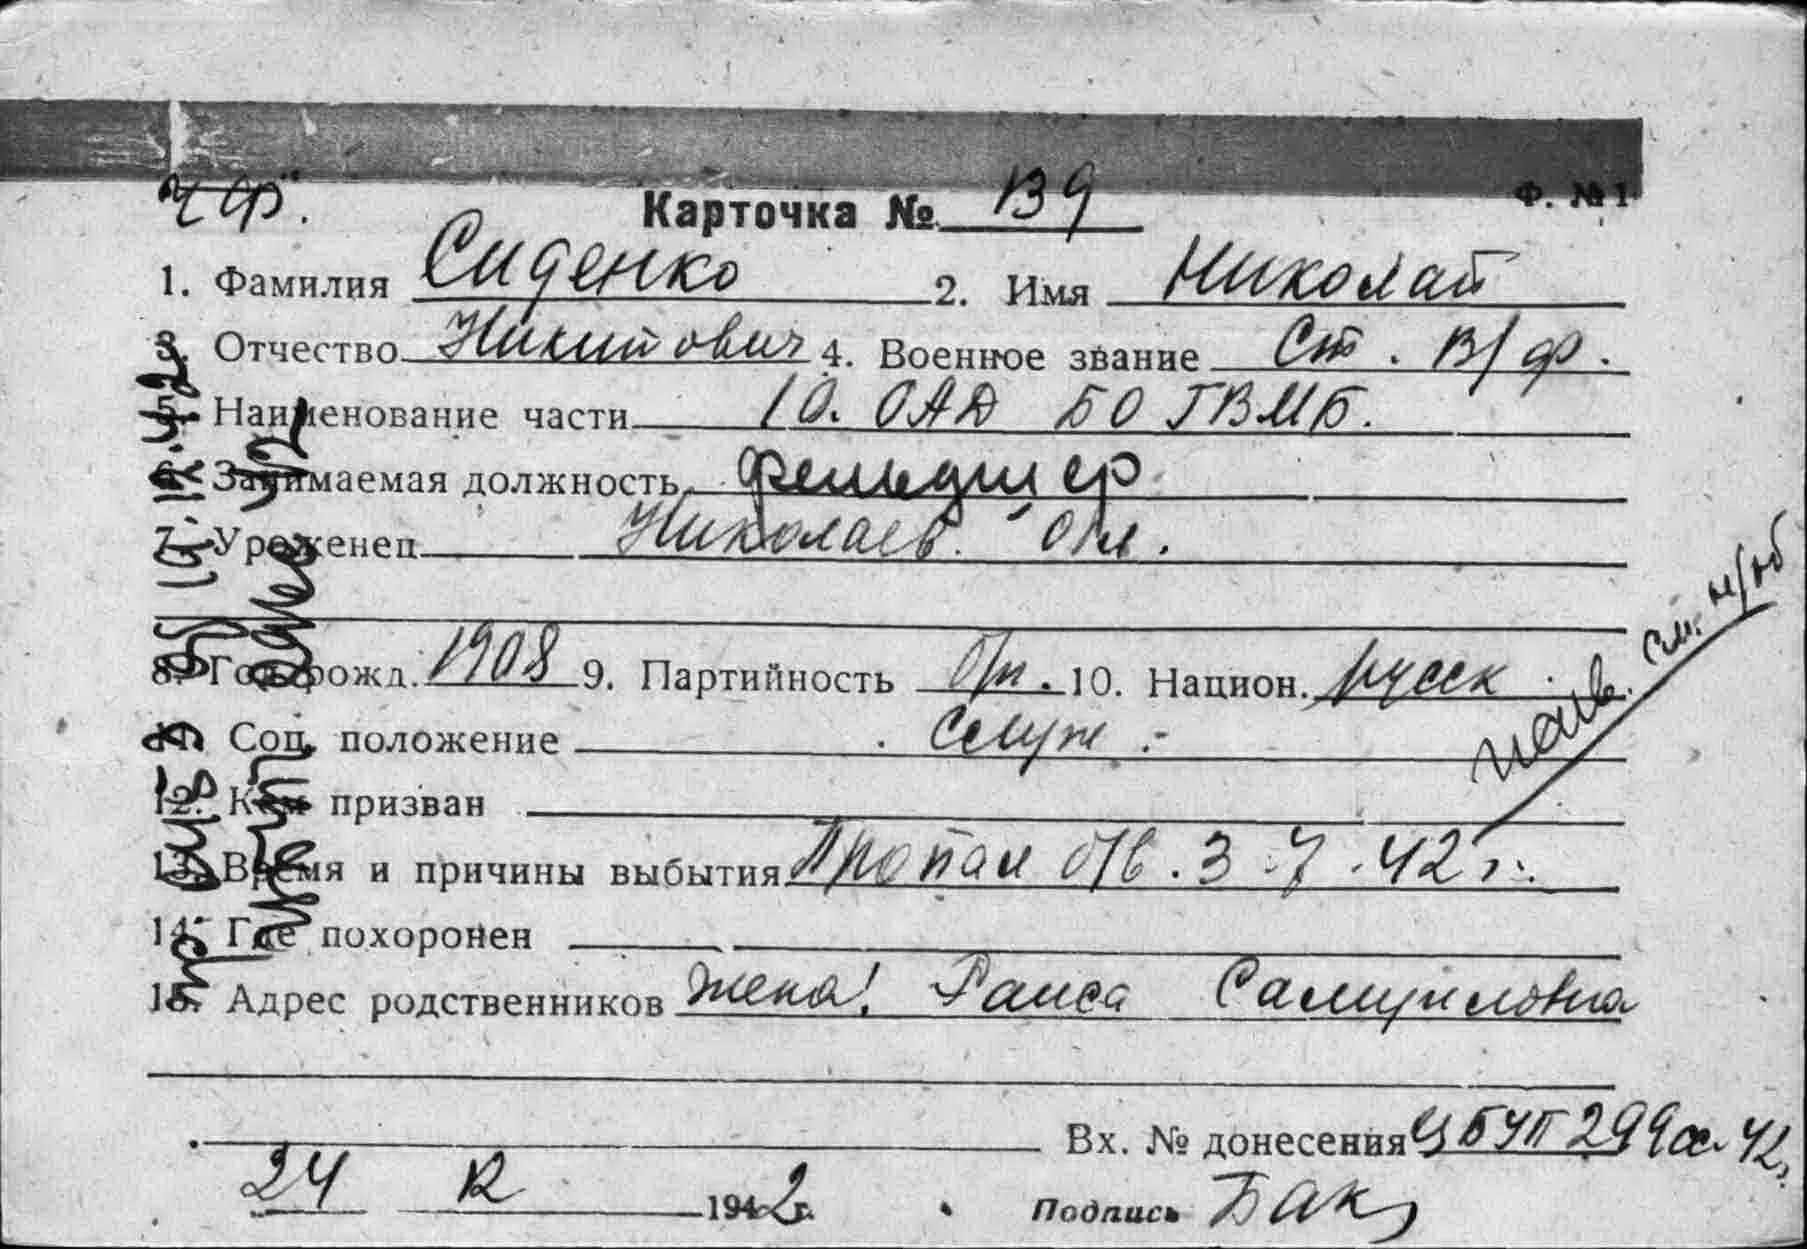 ЧФ.
Карточка № 139 Ф. № 1
1. Фамилия Сиденко 2. Имя Николай
3. Отчество Никитович 4. Военное звание Ст. в/ф.
5. Наименование части 10. ОАД БО ГВМБ.
6. Занимаемая должность фельдшер
7. Уроженец Николаев. обл.
8. Год рожд. 1908 9. Партийность б/п. 10. Национ. русск
11. Соц. положение служ.
12. Кем призван
13. Время и причины выбытия Пропал б/в. 3.7.42 г.
14. Где похоронен
15. Адрес родственников жена: Раиса Самуиловна
Вх. № донесения ЦБУП 299 42
24 1942 г. Подпись Бак
изв. см. н/об